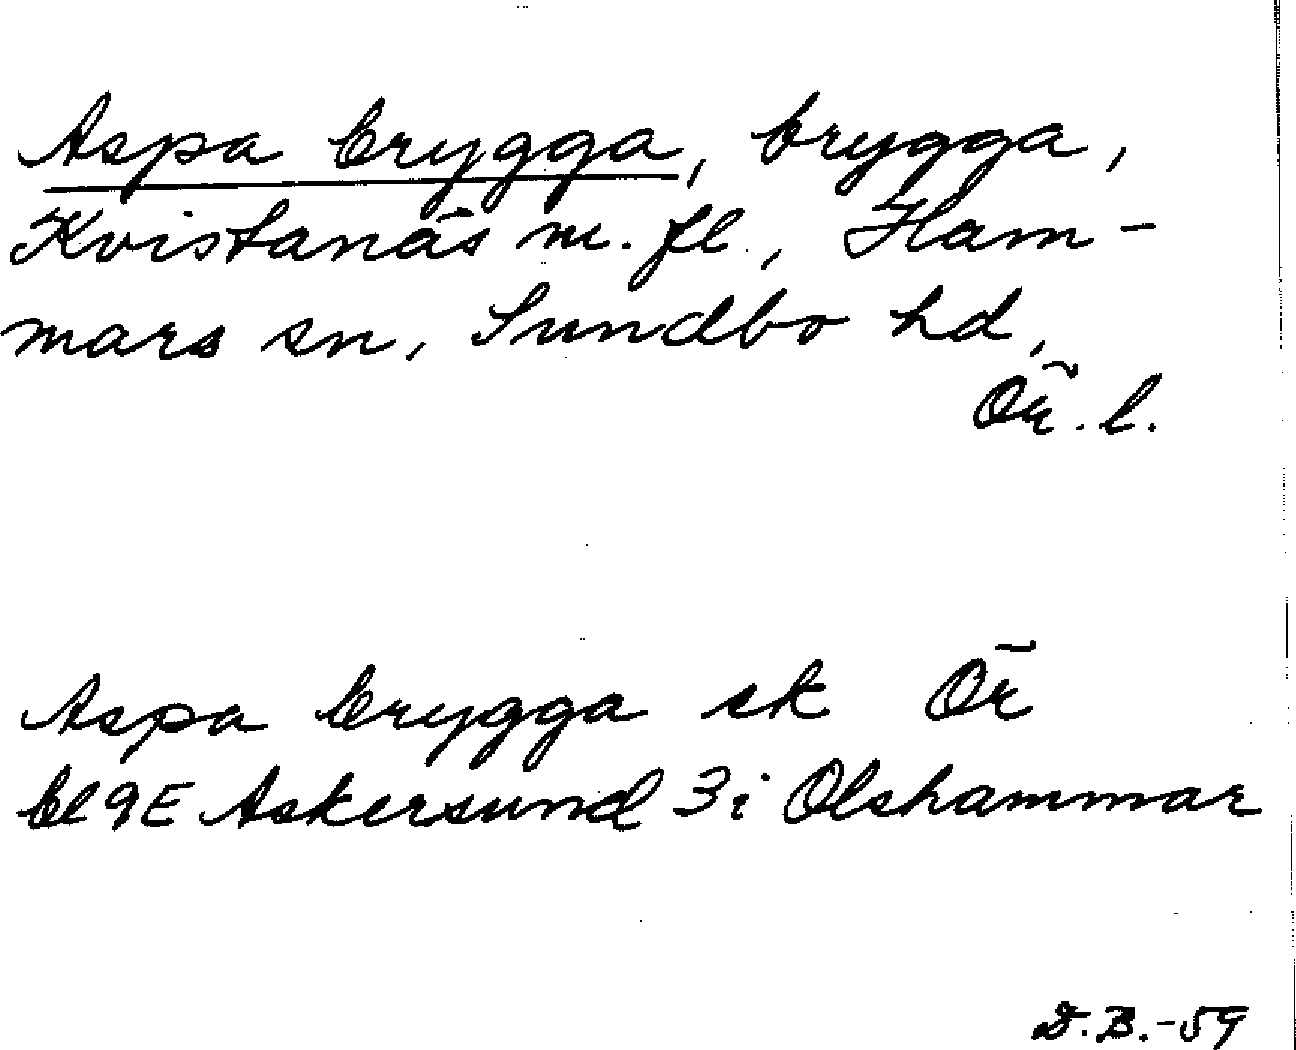 Aspa brygga, brygga,
Kvistanäs m. fl., Ham-
mars sn, Sundbo hd,
Ör. l.
Aspa brygga sk Ör
bl 9E Askersund 3i Olshammar
D.B.-59